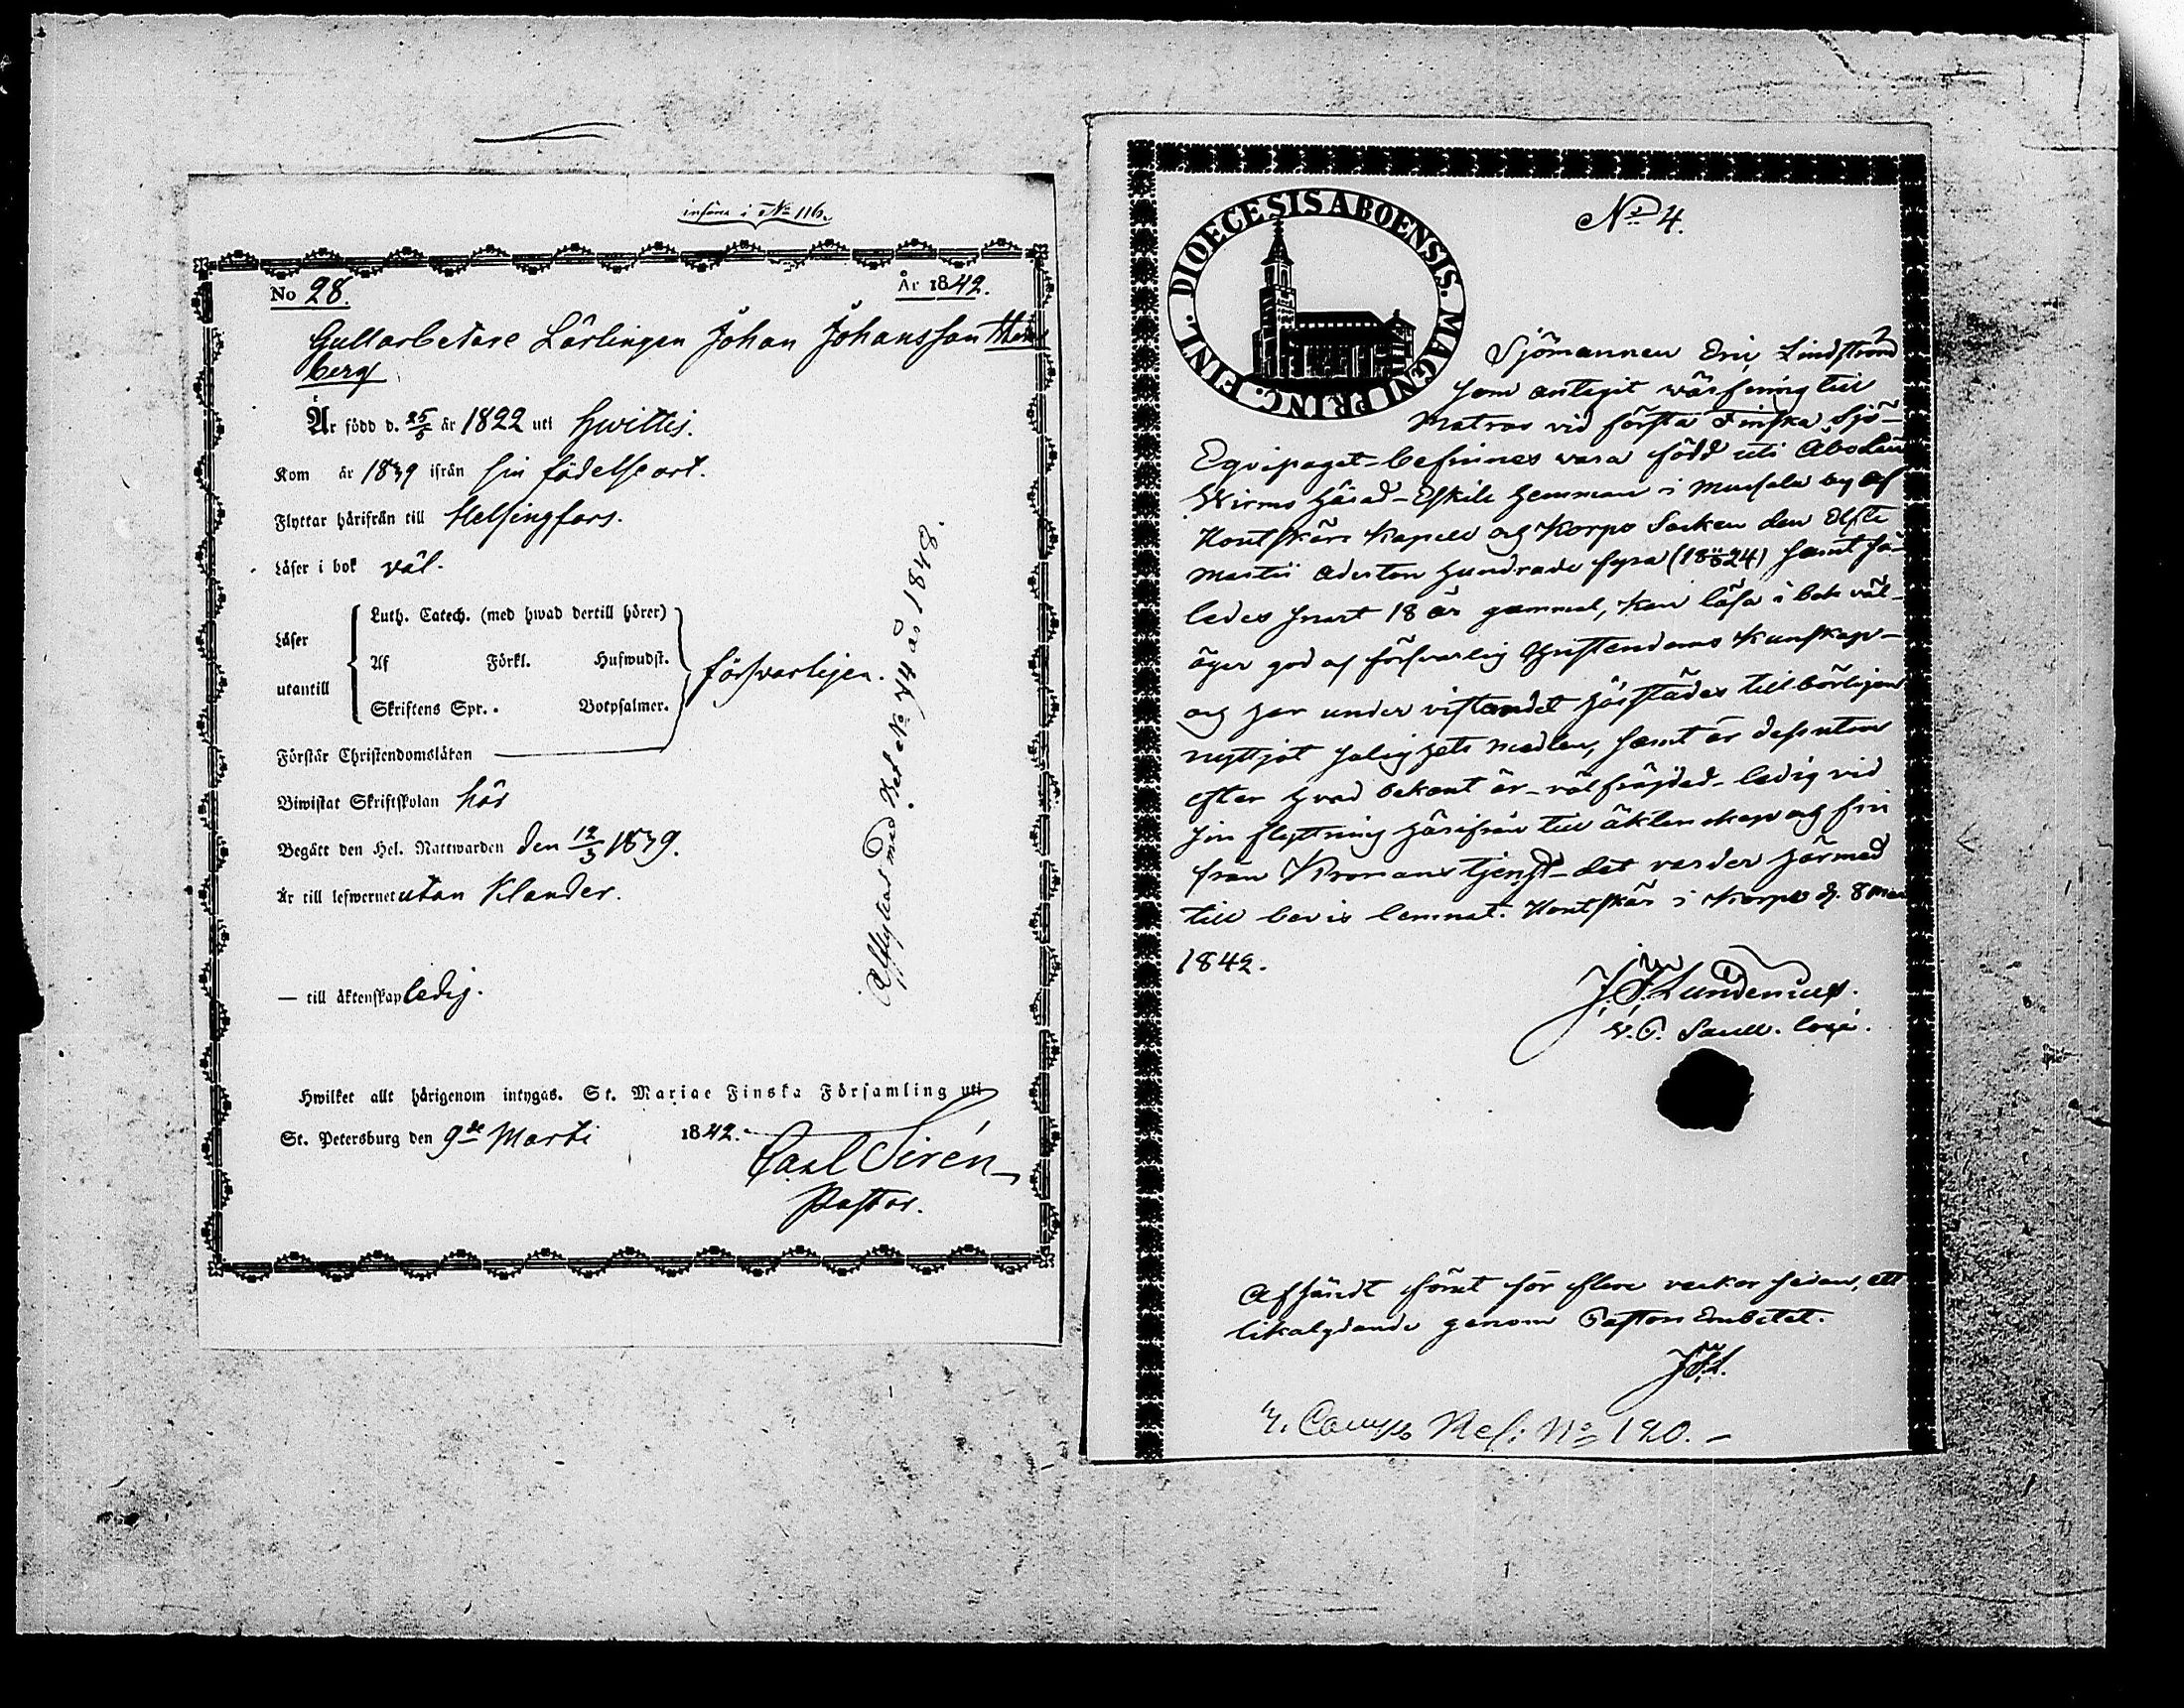 införes i No 116.
No 28.
År 1842.
Gullarbetare Lärlingen Johan Johansson
berg
Är född d. 25/5 år 1822 uti Hwittis.
Kom år 1839 ifrån sin födelseort.
Flyttar härifrån till Helsingfors.
Läser i bok väl.
Läser utantill
Luth. Catech. (med hwad dertill hörer)
Af Förkl. Hufwudst.
Skriftens Spr. Botpsalmer.
försvarligen.
Förstår Christendomslåran
Biwistat Skriftskolan här
Begått den Hel. Nattwarden den 12/3 1839.
Är till lefwernet utan Klander.
— till åktenskap ledig.
Hwilket allt hårigenom intygas. St. Mariae Finska Församling uti
St. Petersburg den 9de Martii 1842.
Carl Sirén
Pastor.
Afflyttad med Bet. No 44 år 1848.
DIOECESIS ABOENSIS. MAGNI PRINC. FINL.
No 4.
Sjömannen Eric Lindström
som antagit värfning till
Matros vid första Finska Sjö-
Equipaget - befinnes vara född uti Åbo Län
Wirmo Härad - Eskils Hemman i by af
Houtskärs Kapell och Korpo Socken den Elfte
Martii Aderton Hundrade fyra (18 11/3 24) samt så-
ledes snart 18 år gammal, kan läsa i bok väl -
äger god och försvarlig Christendoms Kunskap -
och har under vistandet härstädes tillbörligen
nyttjat salighets medlen, samt är dessutom
efter hvad bekant är - välfräjdad - ledig vid
sin flyttning härifrån till äktenskap och fri
från Kronans tjenst - det varder härmed
till bevis lemnat. Houtskär i Korpo d. 8 Mars
1842.
J. F. Lundenius.
V. P. Sacell. loci.
Afsändt förut för flere veckor sedan, ett
likalydande genom Pastors Embetet.
J. F. L.
4. Comp. No 120. -